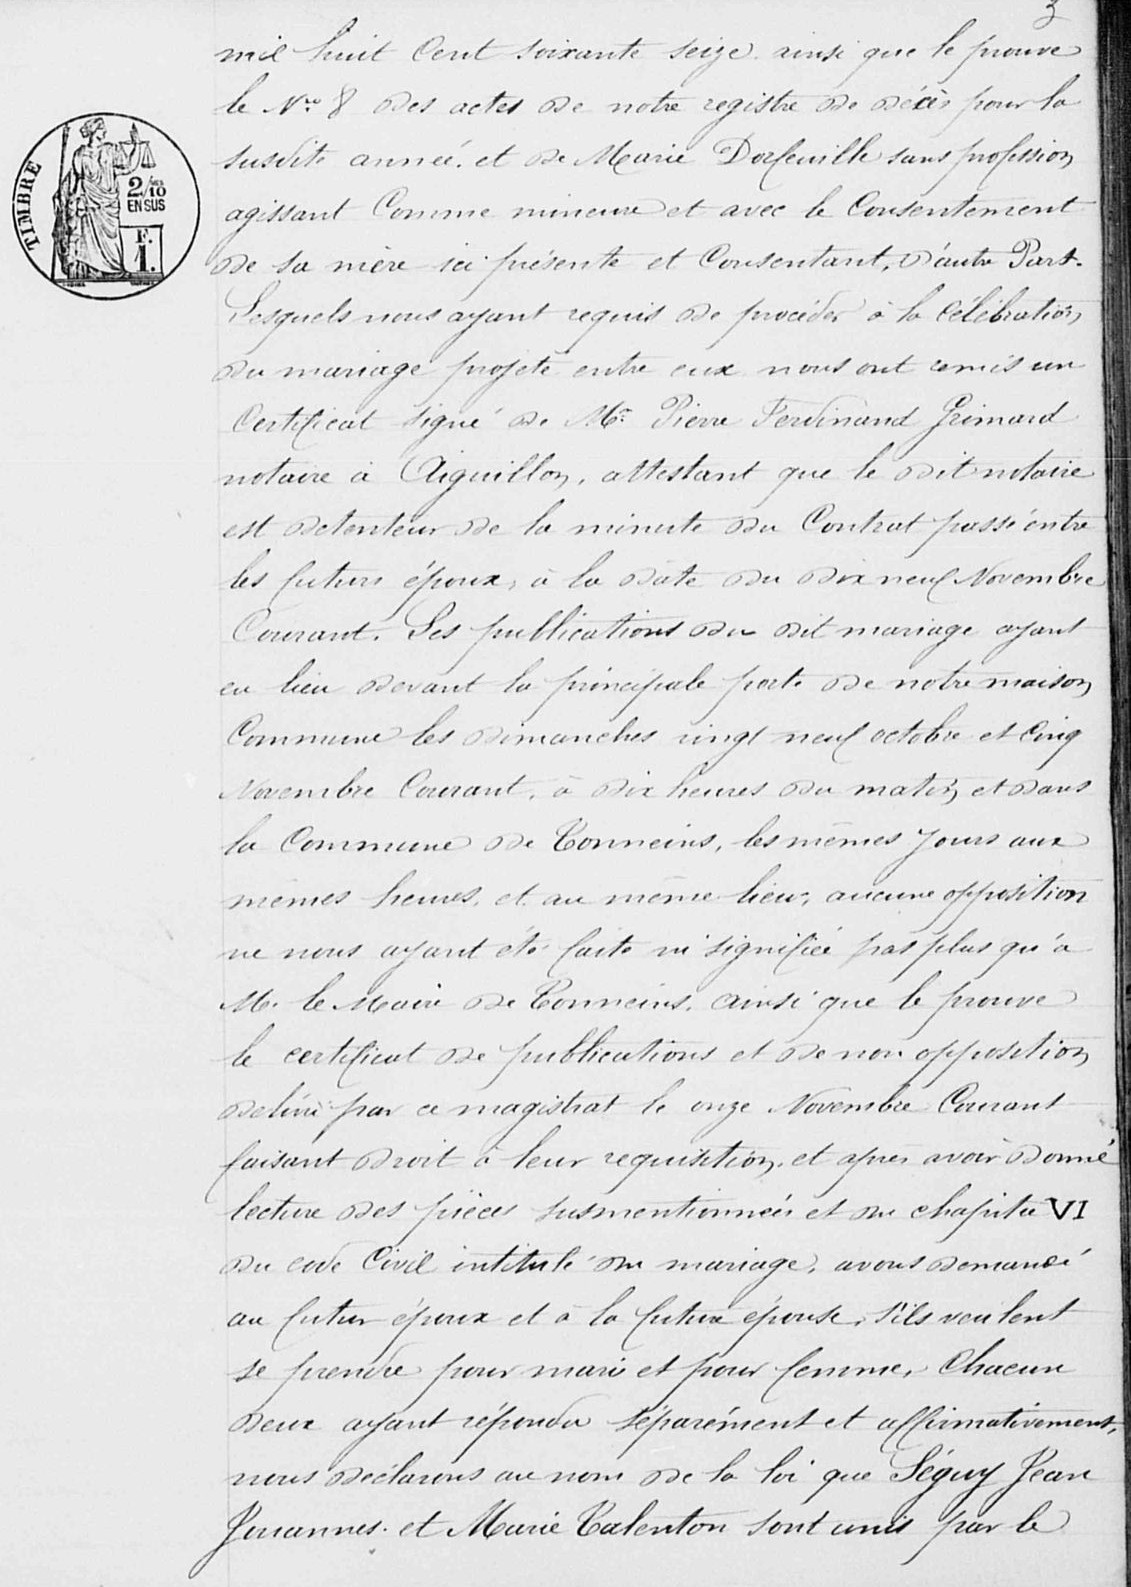 3
mil huit Cent soixante seize ainsi que le prouve
le Nro 8 des actes de notre registre de décès pour la
susdite année. et de Marie Dorfeuille sans profession
agissant Comme mineure et avec le Consentement
de sa mère ici présente et Consentant, d'autre Part.
Lesquels nous ayant requis de procéder à la célébration
du mariage projeté entre eux nous ont remis un
Certificat signé de Mr Pierre Ferdinand Grimard
notaire à Aiguillon, attestant que le dit notaire
est detenteur de la minute du Contrat passé entre
les futurs époux, à la date du dix neuf Novembre
Courant. Les publications du dit mariage ayant
eu lieu devant la principale porte de notre maison
Commune les dimanches vingt neuf octobre et cinq
Novembre Courant, à dix heures du matin, et dans
la Commune de Tonneins, les mêmes Jours aux
mêmes heures, et au même lieu, aucune opposition
ne nous ayant été faite ni signifiée pas plus qu'à
M. le Maire de Tonneins, ainsi que le prouve
le certificat de publications et de non opposition
delivré par ce magistrat le onze Novembre Courant
faisant droit à leur requisition, et après avoir donné
lecture des pièces susmentionnées et du chapitre VI
du code Civil intitulé du mariage, avons demandé
au futur époux et à la future épouse, s'ils veulent
se prendre pour mari et pour femme, Chacun
deux ayant répondu séparément et affirmativement,
nous déclarons au nom de la loi que Séguy Jean
Jouannes. et Marie Talenton sont unis par le
TIMBRE
2/10
EN SUS
F.
1.